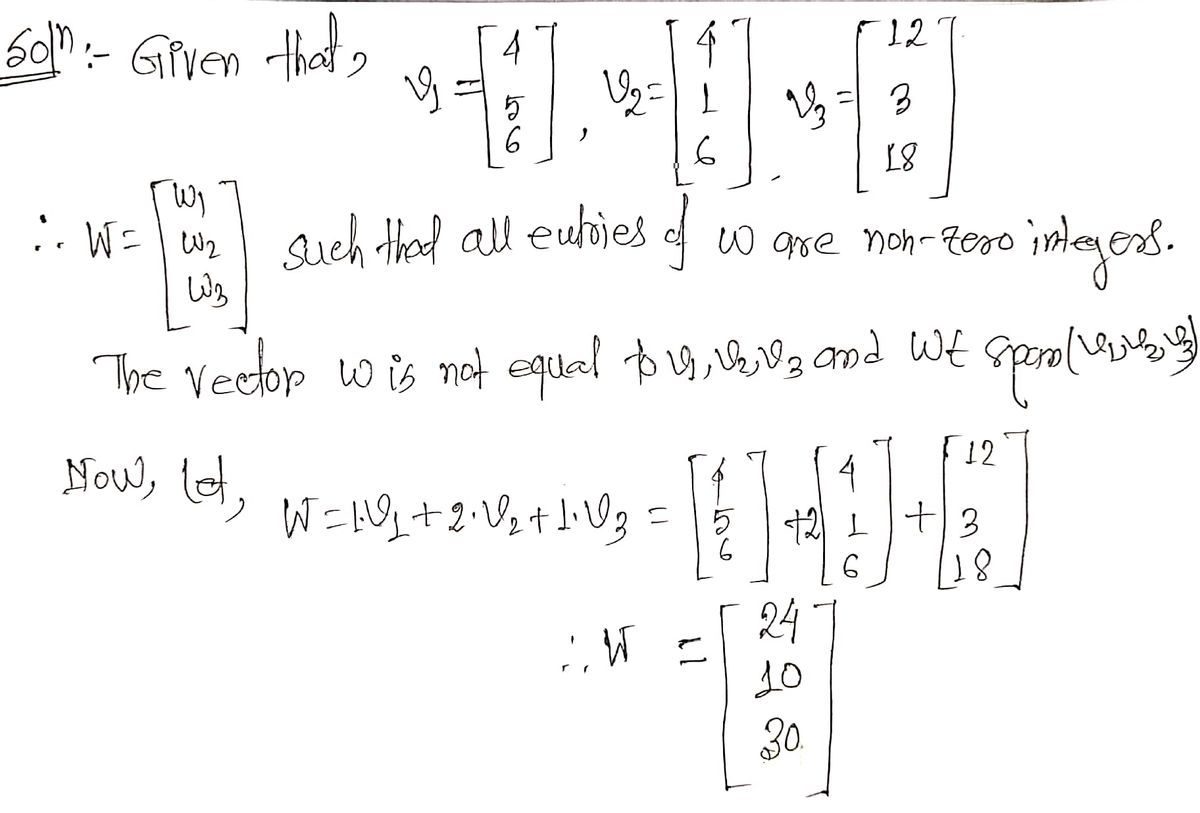 Soln :- Given that, v1 = [4 5 6], v2 = [4 1 6], v3 = [12 3 18]
∴ W = [w1 w2 w3] such that all entries of w are non-zero integers.
The vector w is not equal to v1, v2, v3 and W ∈ Span(v1, v2, v3)
Now, let, W = 1·v1 + 2·v2 + 1·v3 = [4 5 6] + 2[4 1 6] + [12 3 18]
∴ W = [24 10 30]